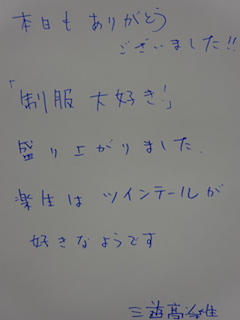 本日もありがとう
ございました!!
「制服大好き!」
盛り上がりました.
楽生はツインテールが
好きなようです
三遊亭